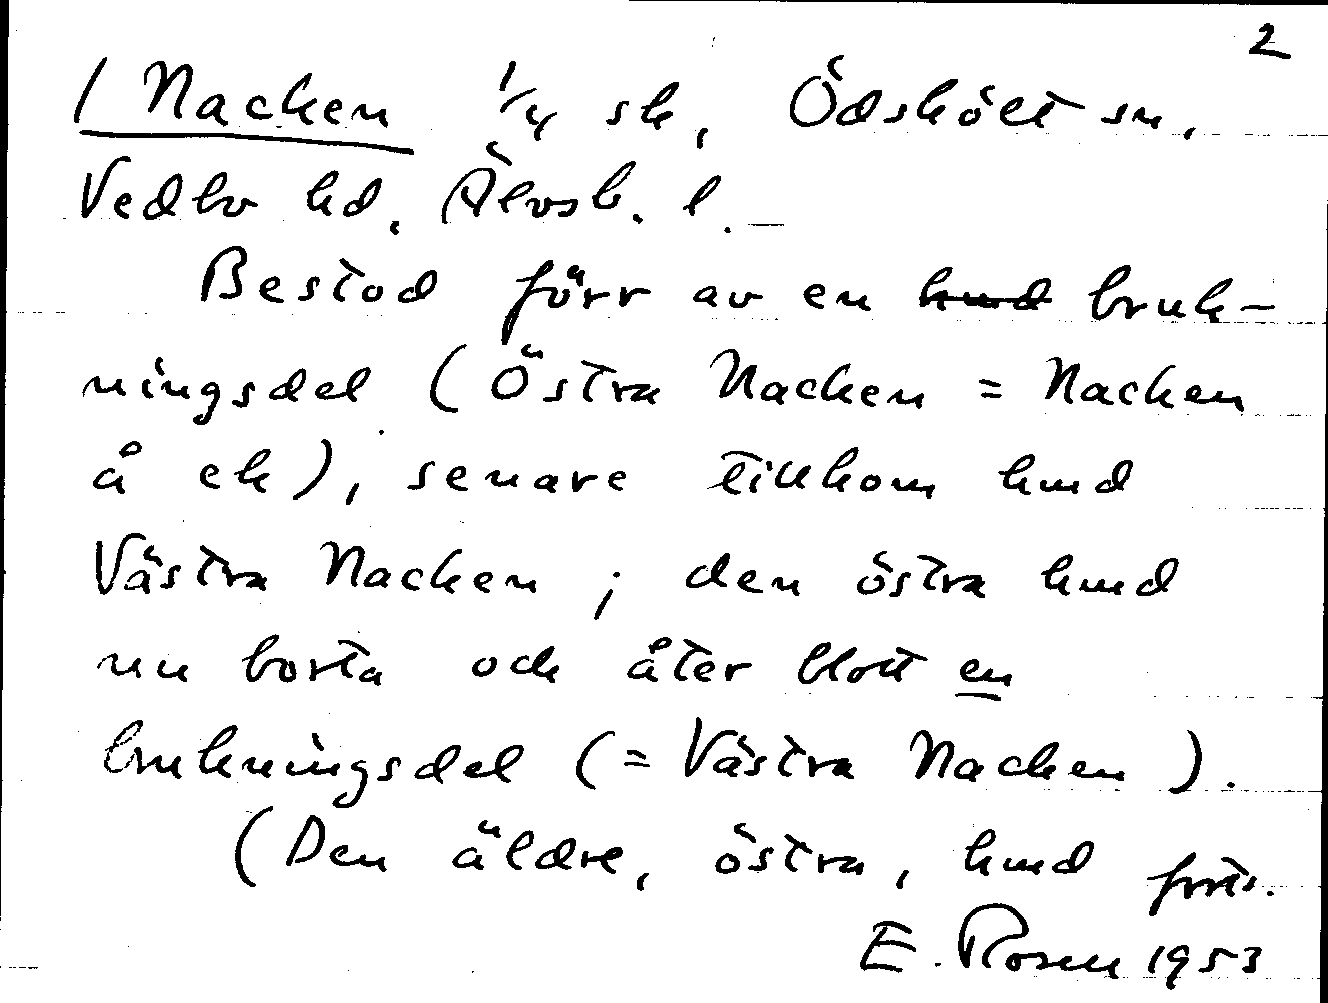 2
/ Nacken 1/4 sk, Ödskölt sn,
Vedbo hd, Älvsb. l. —
Bestod förr av en hmd bruk-
ningsdel (Östra Nacken = Nacken
å ek), senare tillkom hmd
Västra Nacken; den östra hmd
nu borta och åter blott en
brukningsdel (= Västra Nacken).
(Den äldre, östra, hmd forts.
E. Rosen 1953